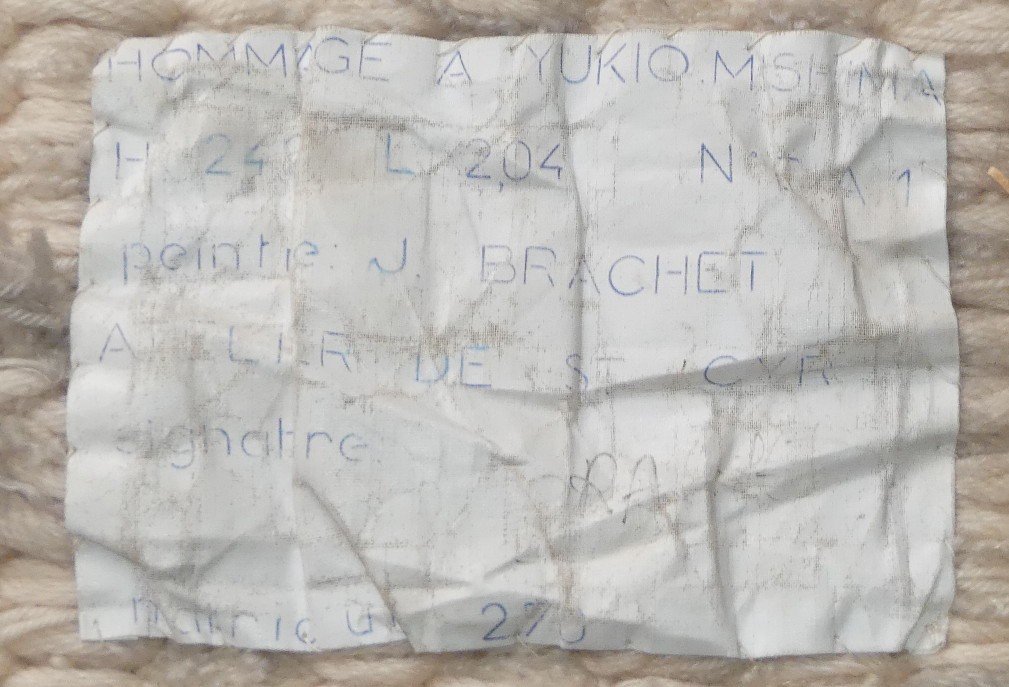 HOMMAGE A YUKIO MSHIMA
H 24 L 2,04 N A 1
peintre: J. BRACHET
ATELIER DE ST CYR
signatre:
matricule 270